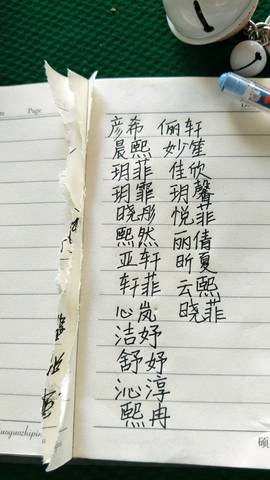 Page
彦希 俪轩
晨熙 妙笙
玥菲 佳欣
玥霏 玥馨
晓彤 悦菲
熙然 丽倩
亚轩 昕夏
轩菲 云熙
心岚 晓菲
洁妤
舒妤
沁淳
熙冉
硕